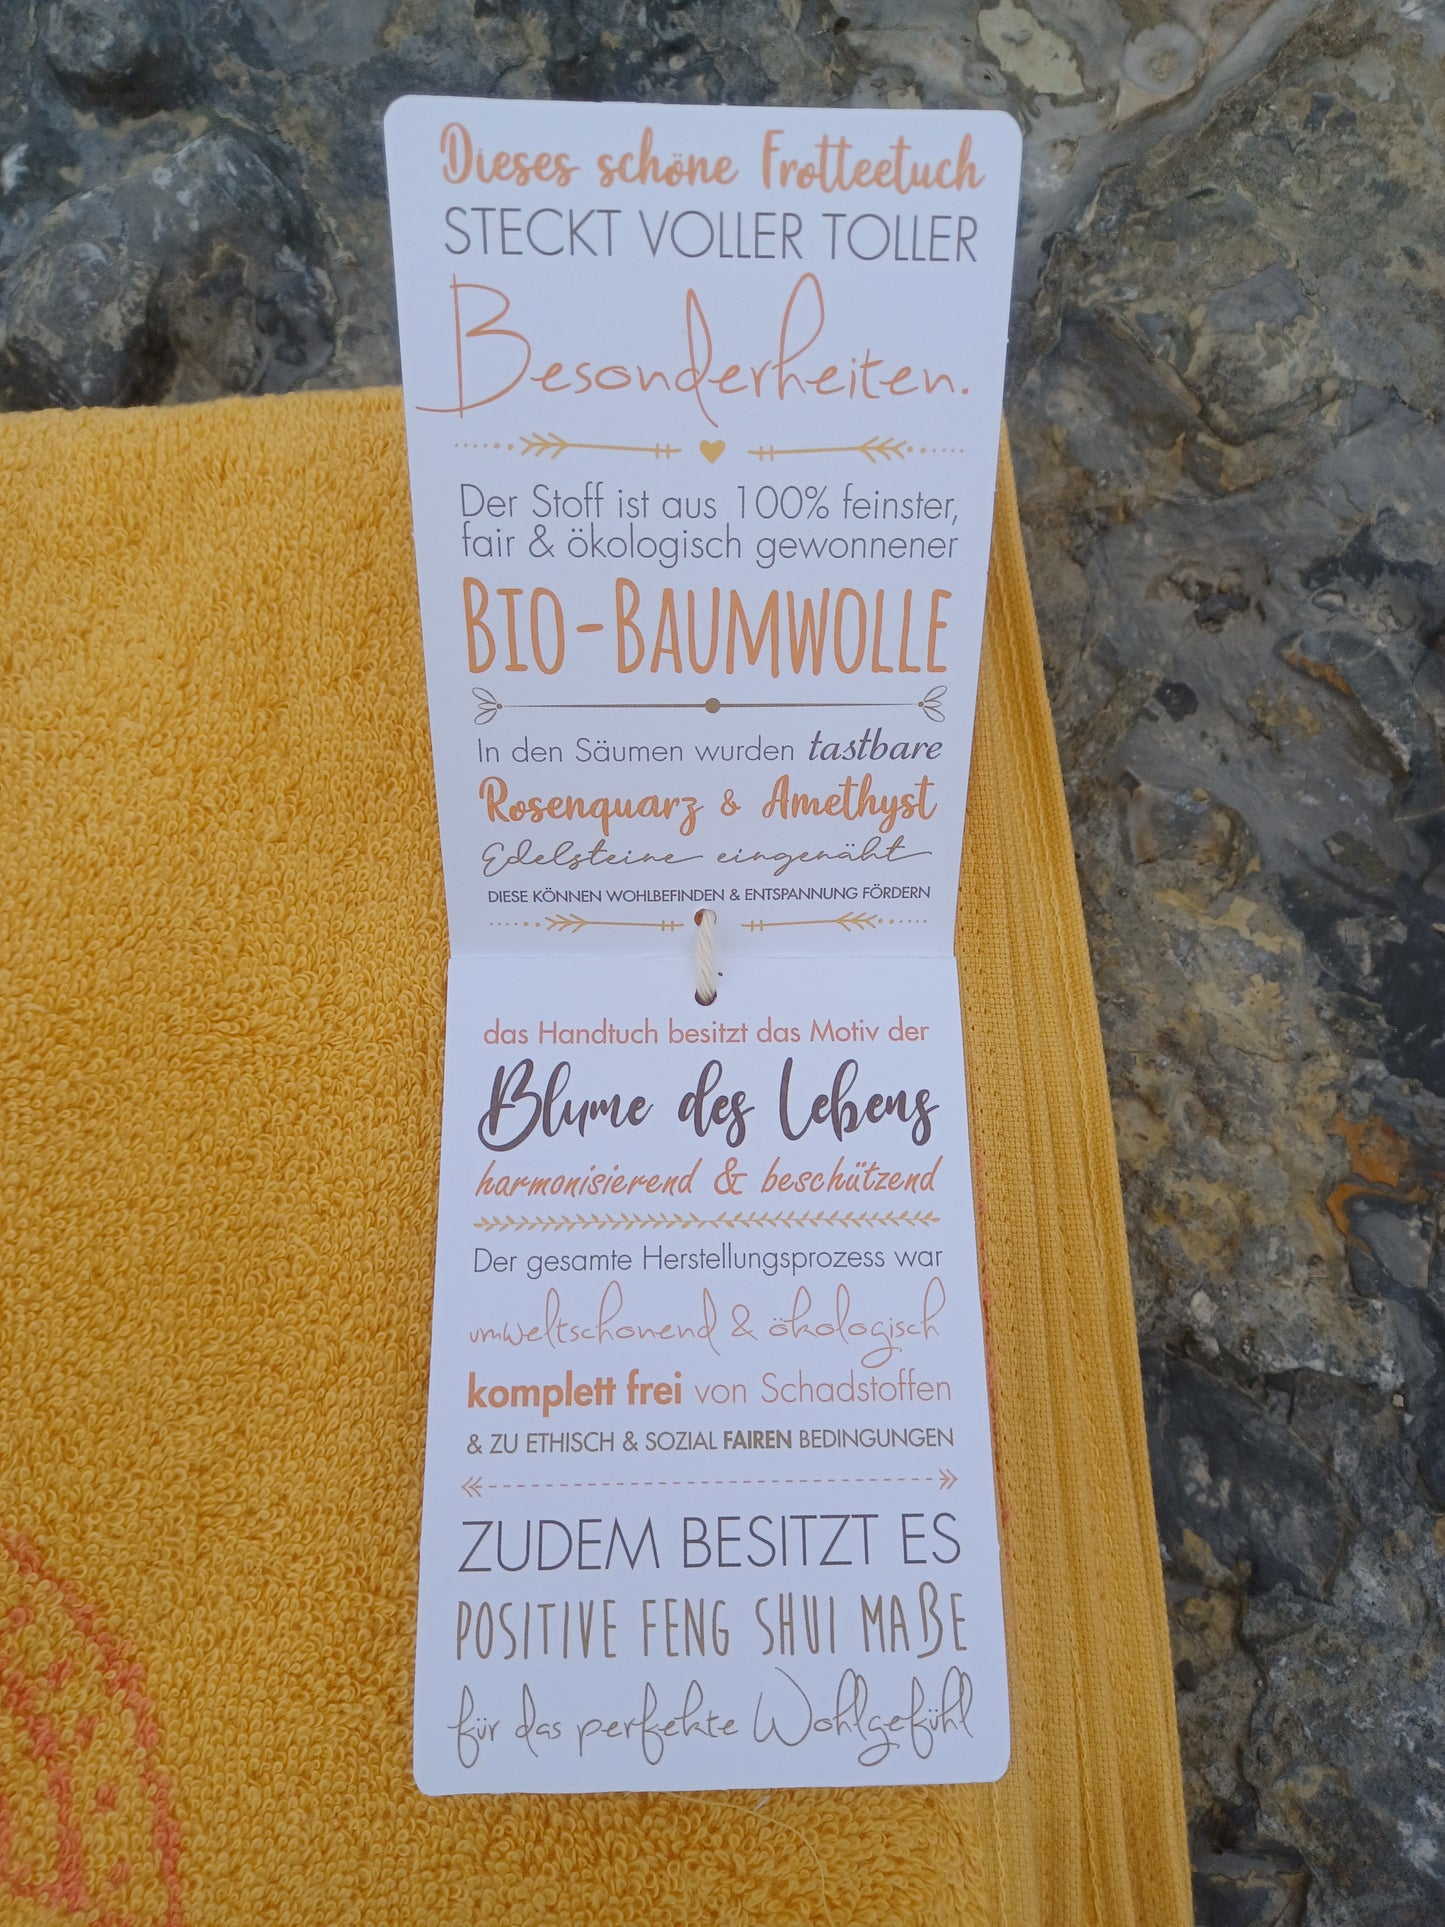 Dieses schöne Frotteetuch
STECKT VOLLER TOLLER
Besonderheiten.
Der Stoff ist aus 100% feinster,
fair & ökologisch gewonnener
BIO-BAUMWOLLE
In den Säumen wurden tastbare
Rosenquarz & Amethyst
Edelsteine eingenäht
DIESE KÖNNEN WOHLBEFINDEN & ENTSPANNUNG FÖRDERN
das Handtuch besitzt das Motiv der
Blume des Lebens
harmonisierend & beschützend
Der gesamte Herstellungsprozess war
umweltschonend & ökologisch
komplett frei von Schadstoffen
& ZU ETHISCH & SOZIAL FAIREN BEDINGUNGEN
ZUDEM BESITZT ES
POSITIVE FENG SHUI MAßE
für das perfekte Wohlgefühl